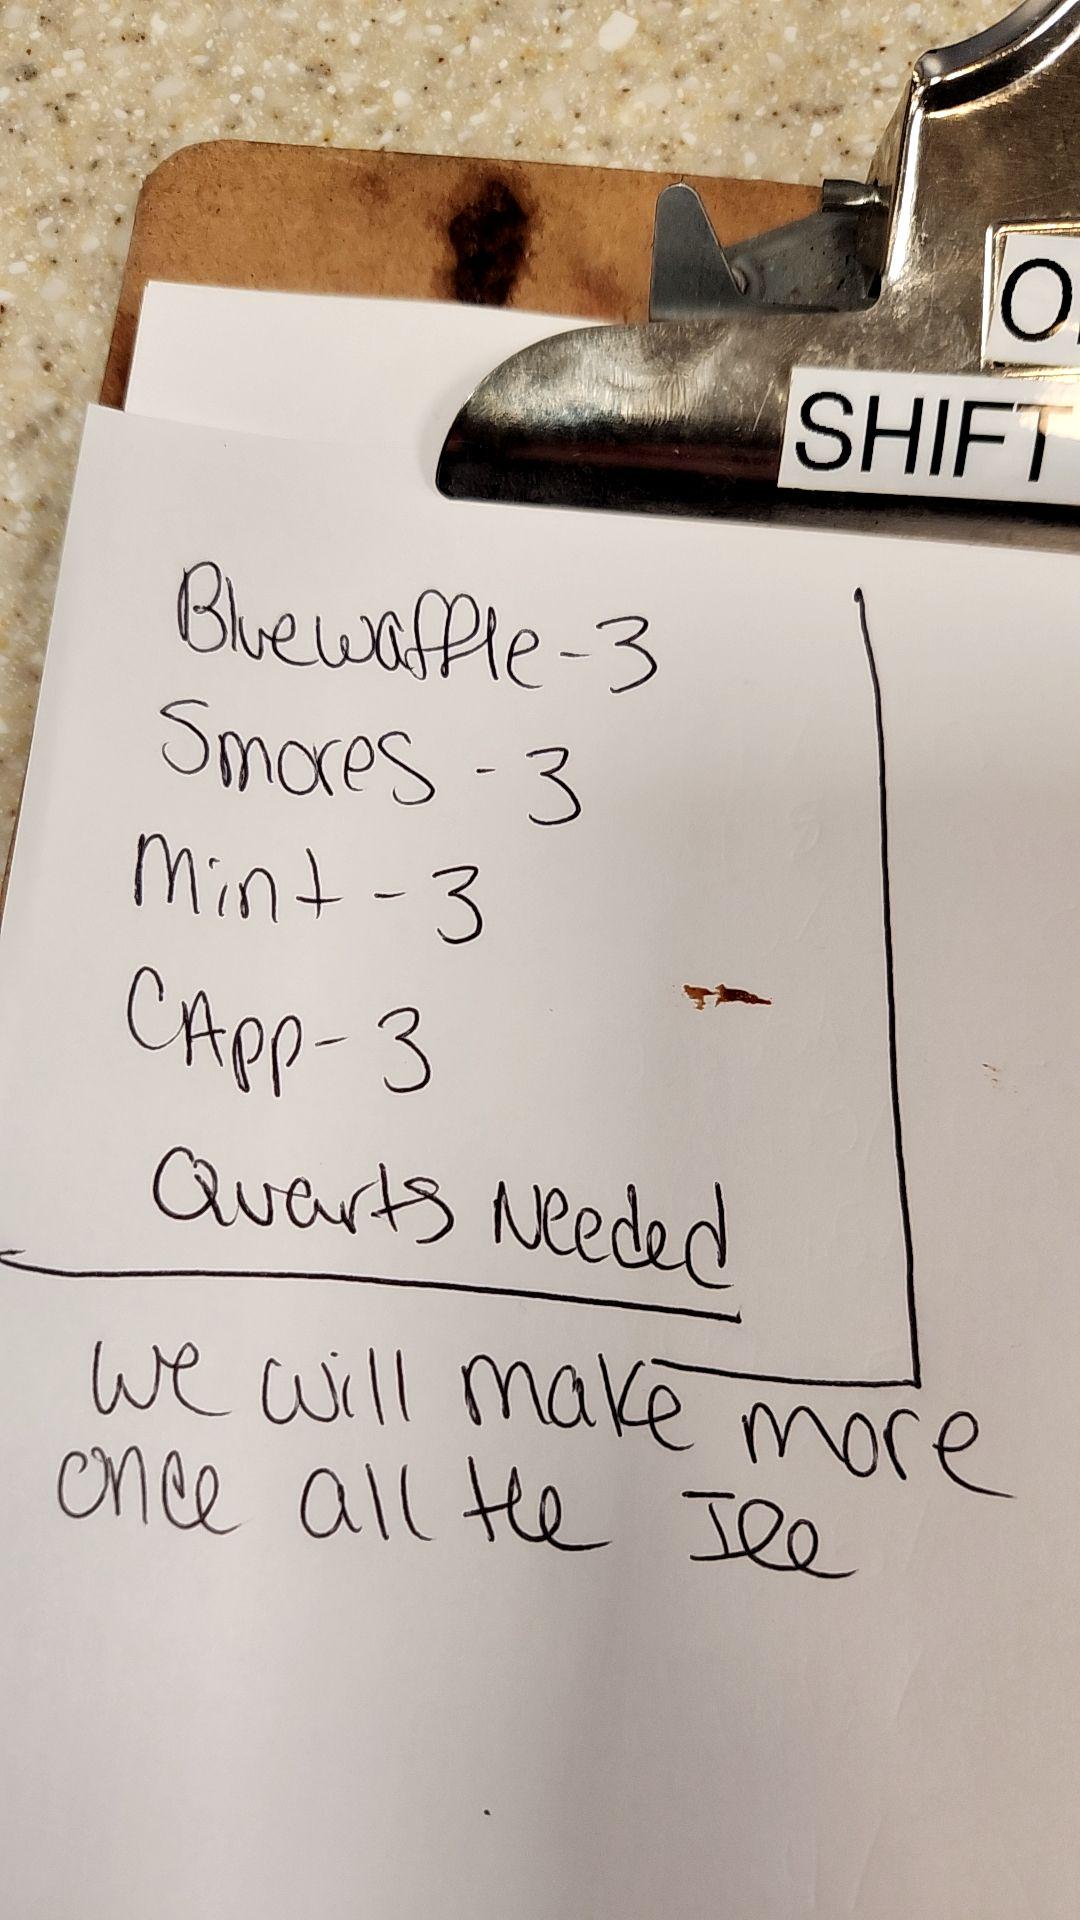 O
SHIFT
Bluewaffle - 3
Smores - 3
Mint - 3
CApp - 3
Quarts Needed
We will make more
once all the Ice